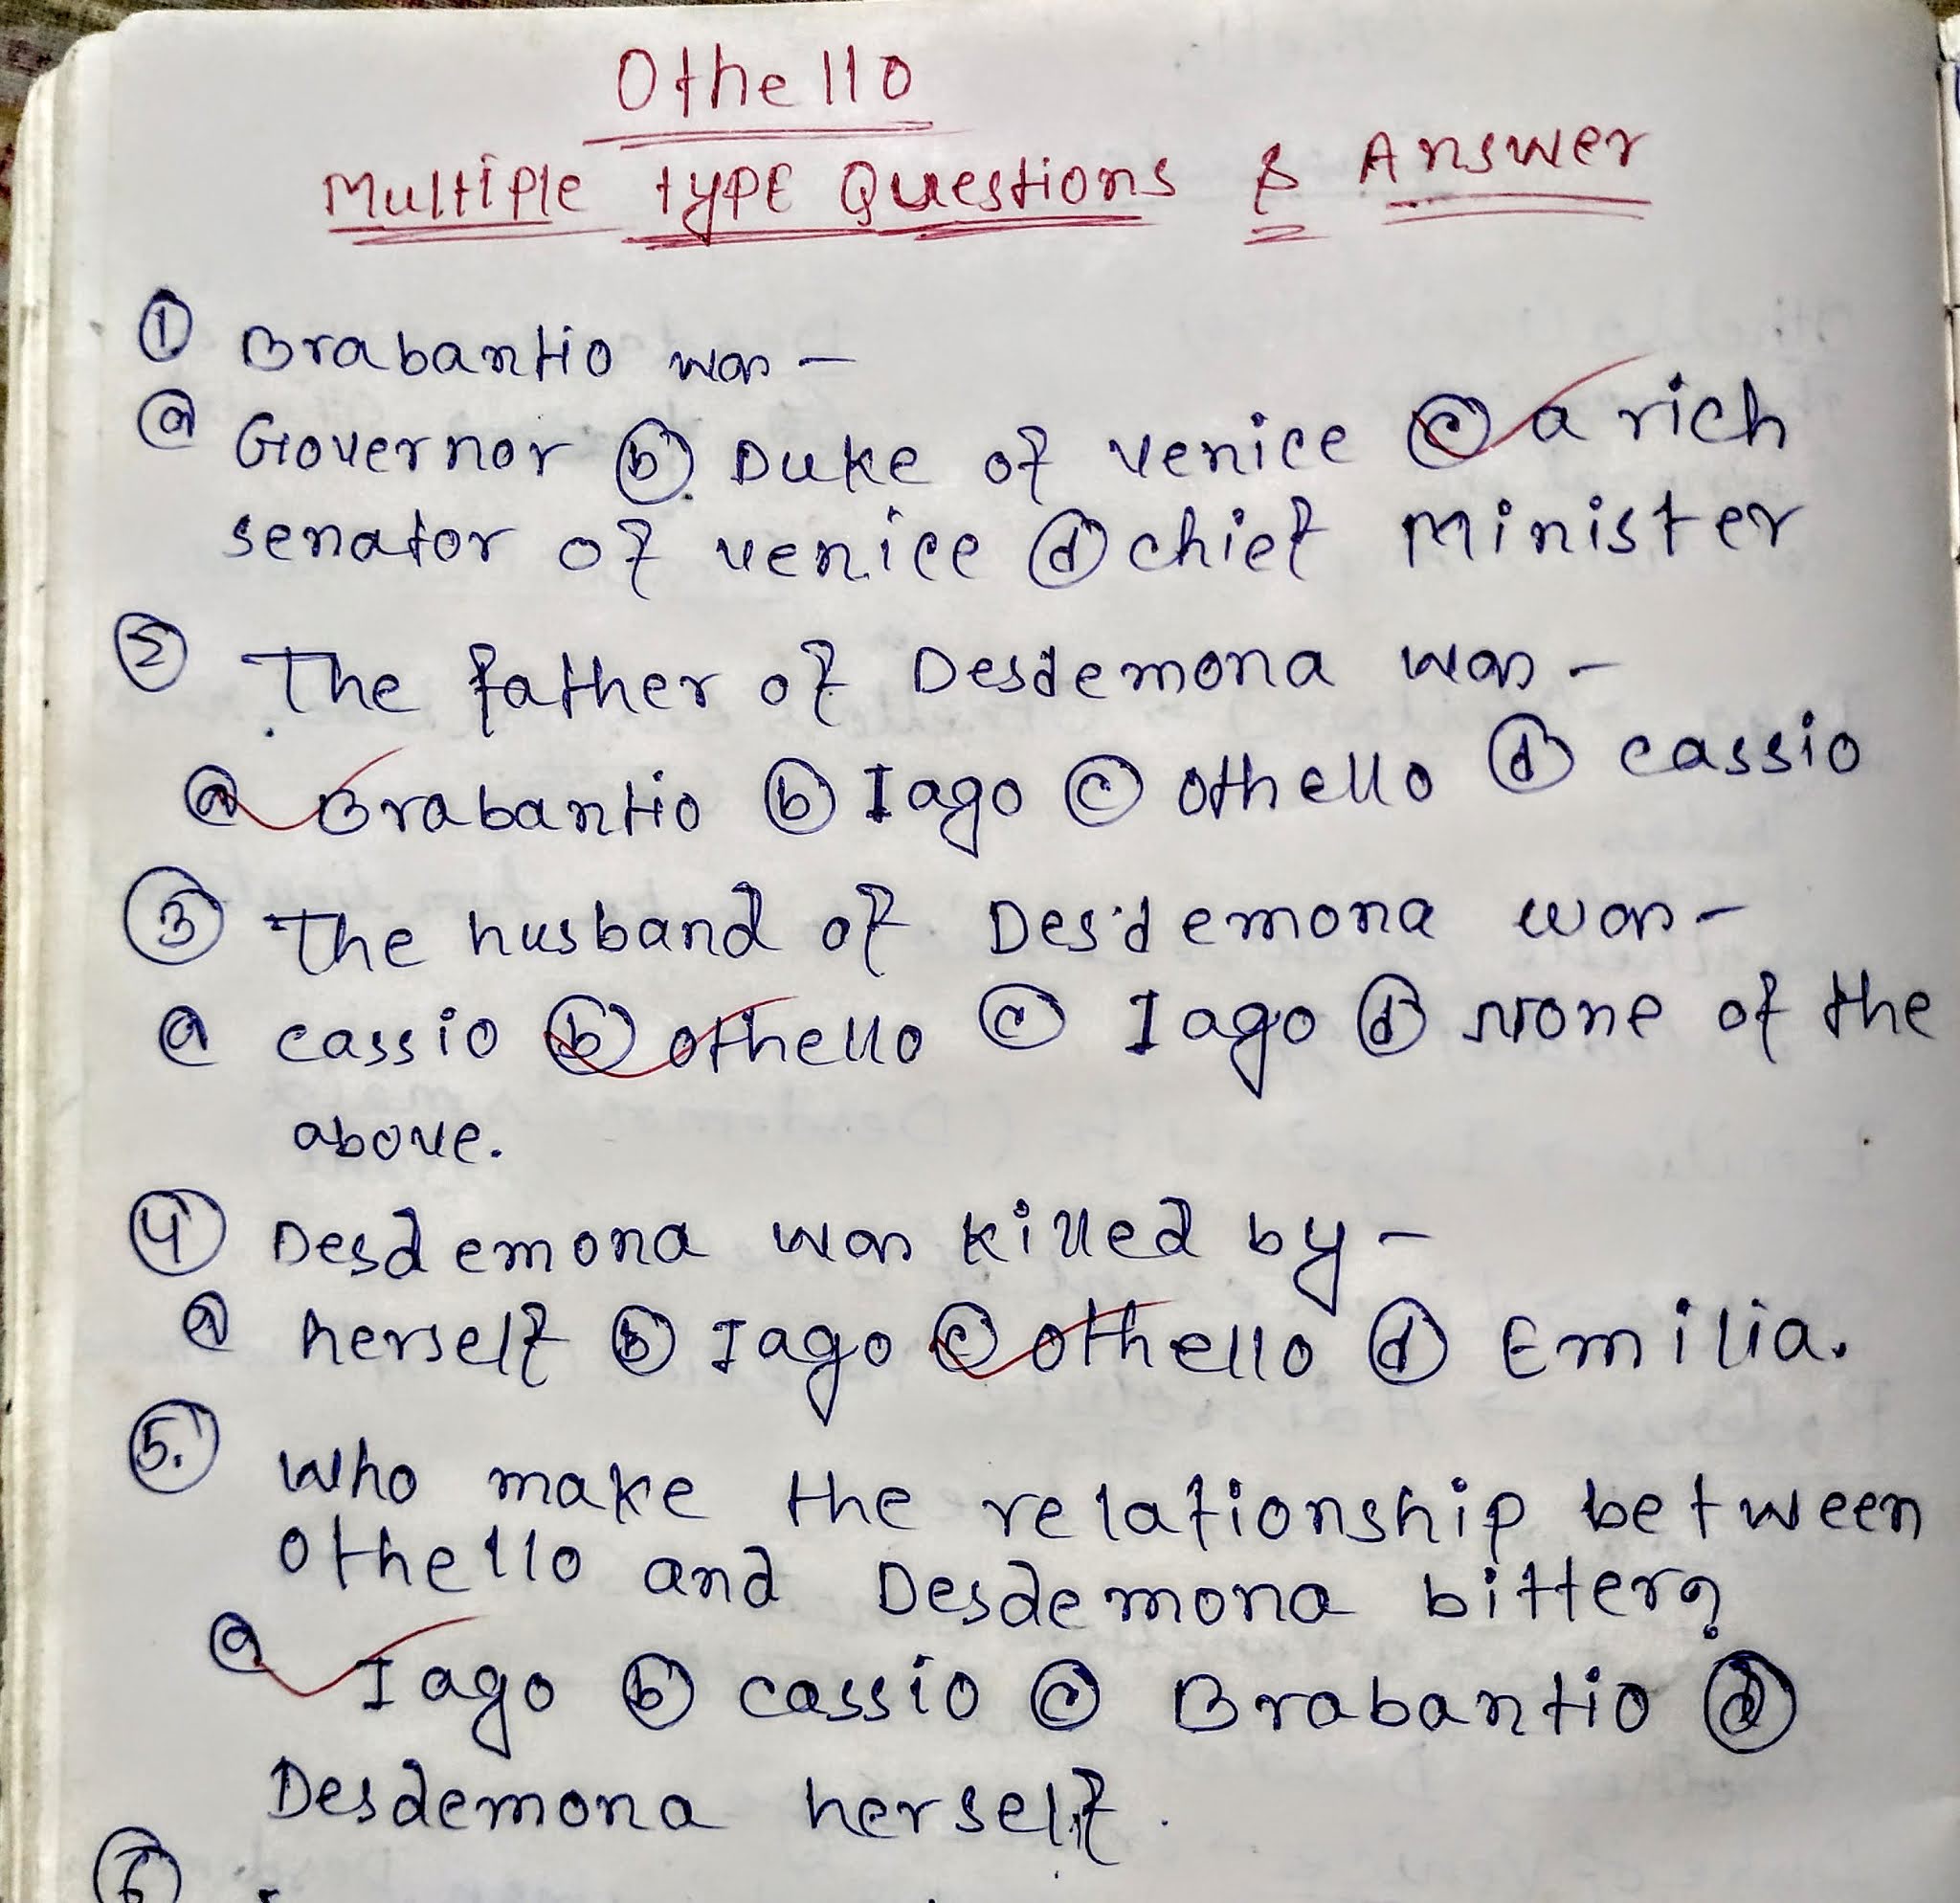 Othello
Multiple type Questions & Answer
① Brabantio was –
ⓐ Governor ⓑ Duke of venice ⓒ a rich
senator of venice ⓓ chief Minister
② The father of Desdemona was –
ⓐ Brabantio ⓑ Iago ⓒ Othello ⓓ cassio
③ The husband of Desdemona was –
ⓐ cassio ⓑ Othello ⓒ Iago ⓓ None of the
above.
④ Desdemona was killed by –
ⓐ herself ⓑ Iago ⓒ Othello ⓓ Emilia.
⑤. Who make the relationship between
Othello and Desdemona bitter?
ⓐ Iago ⓑ cassio ⓒ Brabantio ⓓ
Desdemona herself.
⑥